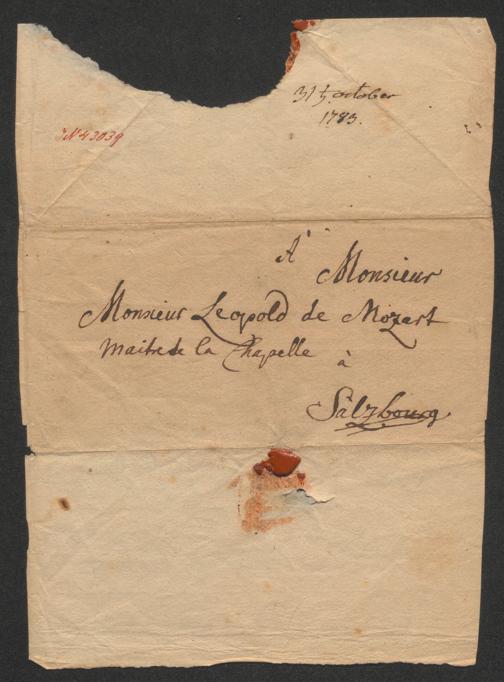 31t october
1783.
IN 43039
A
Monsieur
Monsieur Leopold de Mozart
maitre de la Chapelle à
Salzbourg